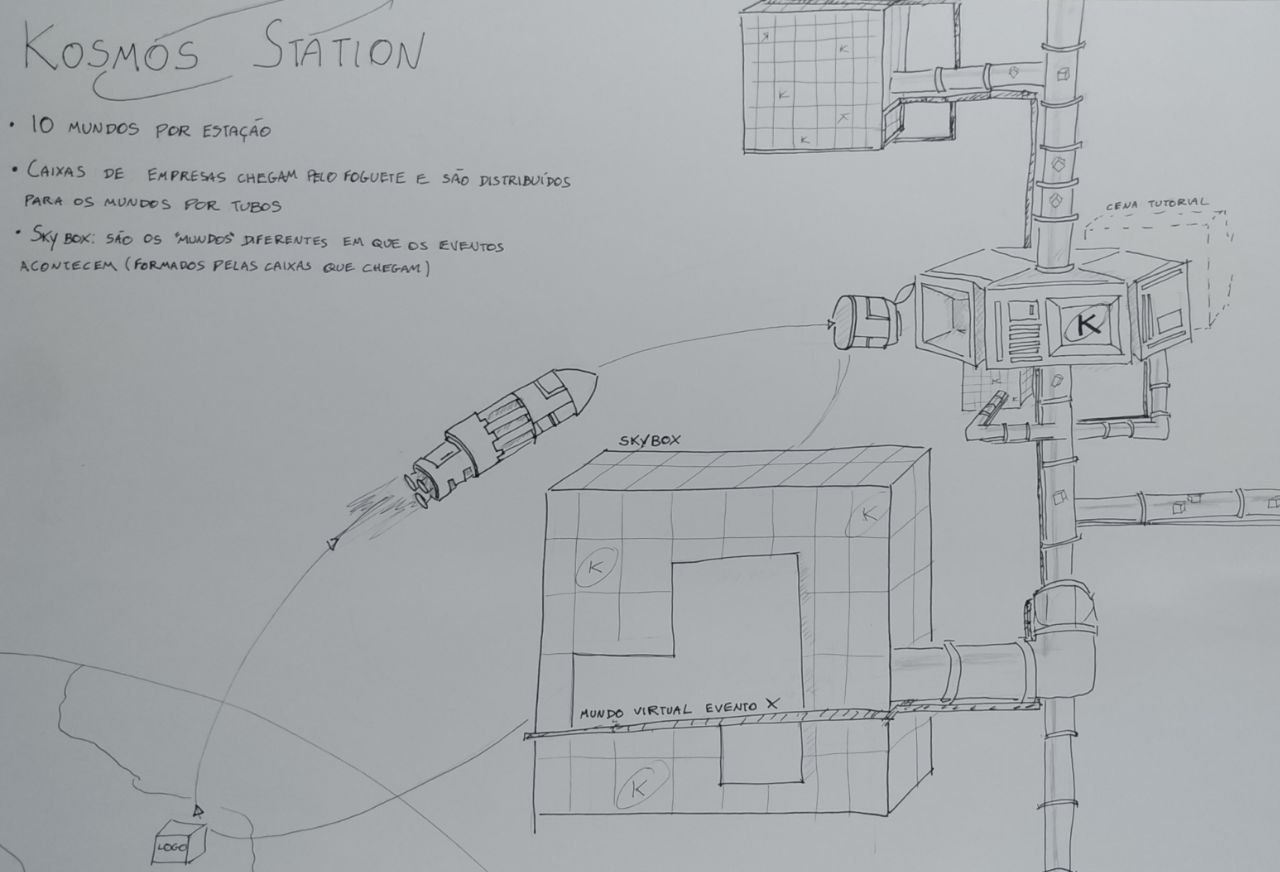 KOSMOS STATION
• 10 MUNDOS POR ESTAÇÃO
• CAIXAS DE EMPRESAS CHEGAM PELO FOGUETE E SÃO DISTRIBUÍDOS
PARA OS MUNDOS POR TUBOS
• SKY BOX: SÃO OS "MUNDOS" DIFERENTES EM QUE OS EVENTOS
ACONTECEM (FORMADOS PELAS CAIXAS QUE CHEGAM)
K
K
K
K
K
CENA TUTORIAL
K
SKYBOX
K
K
MUNDO VIRTUAL EVENTO X
K
LOGO